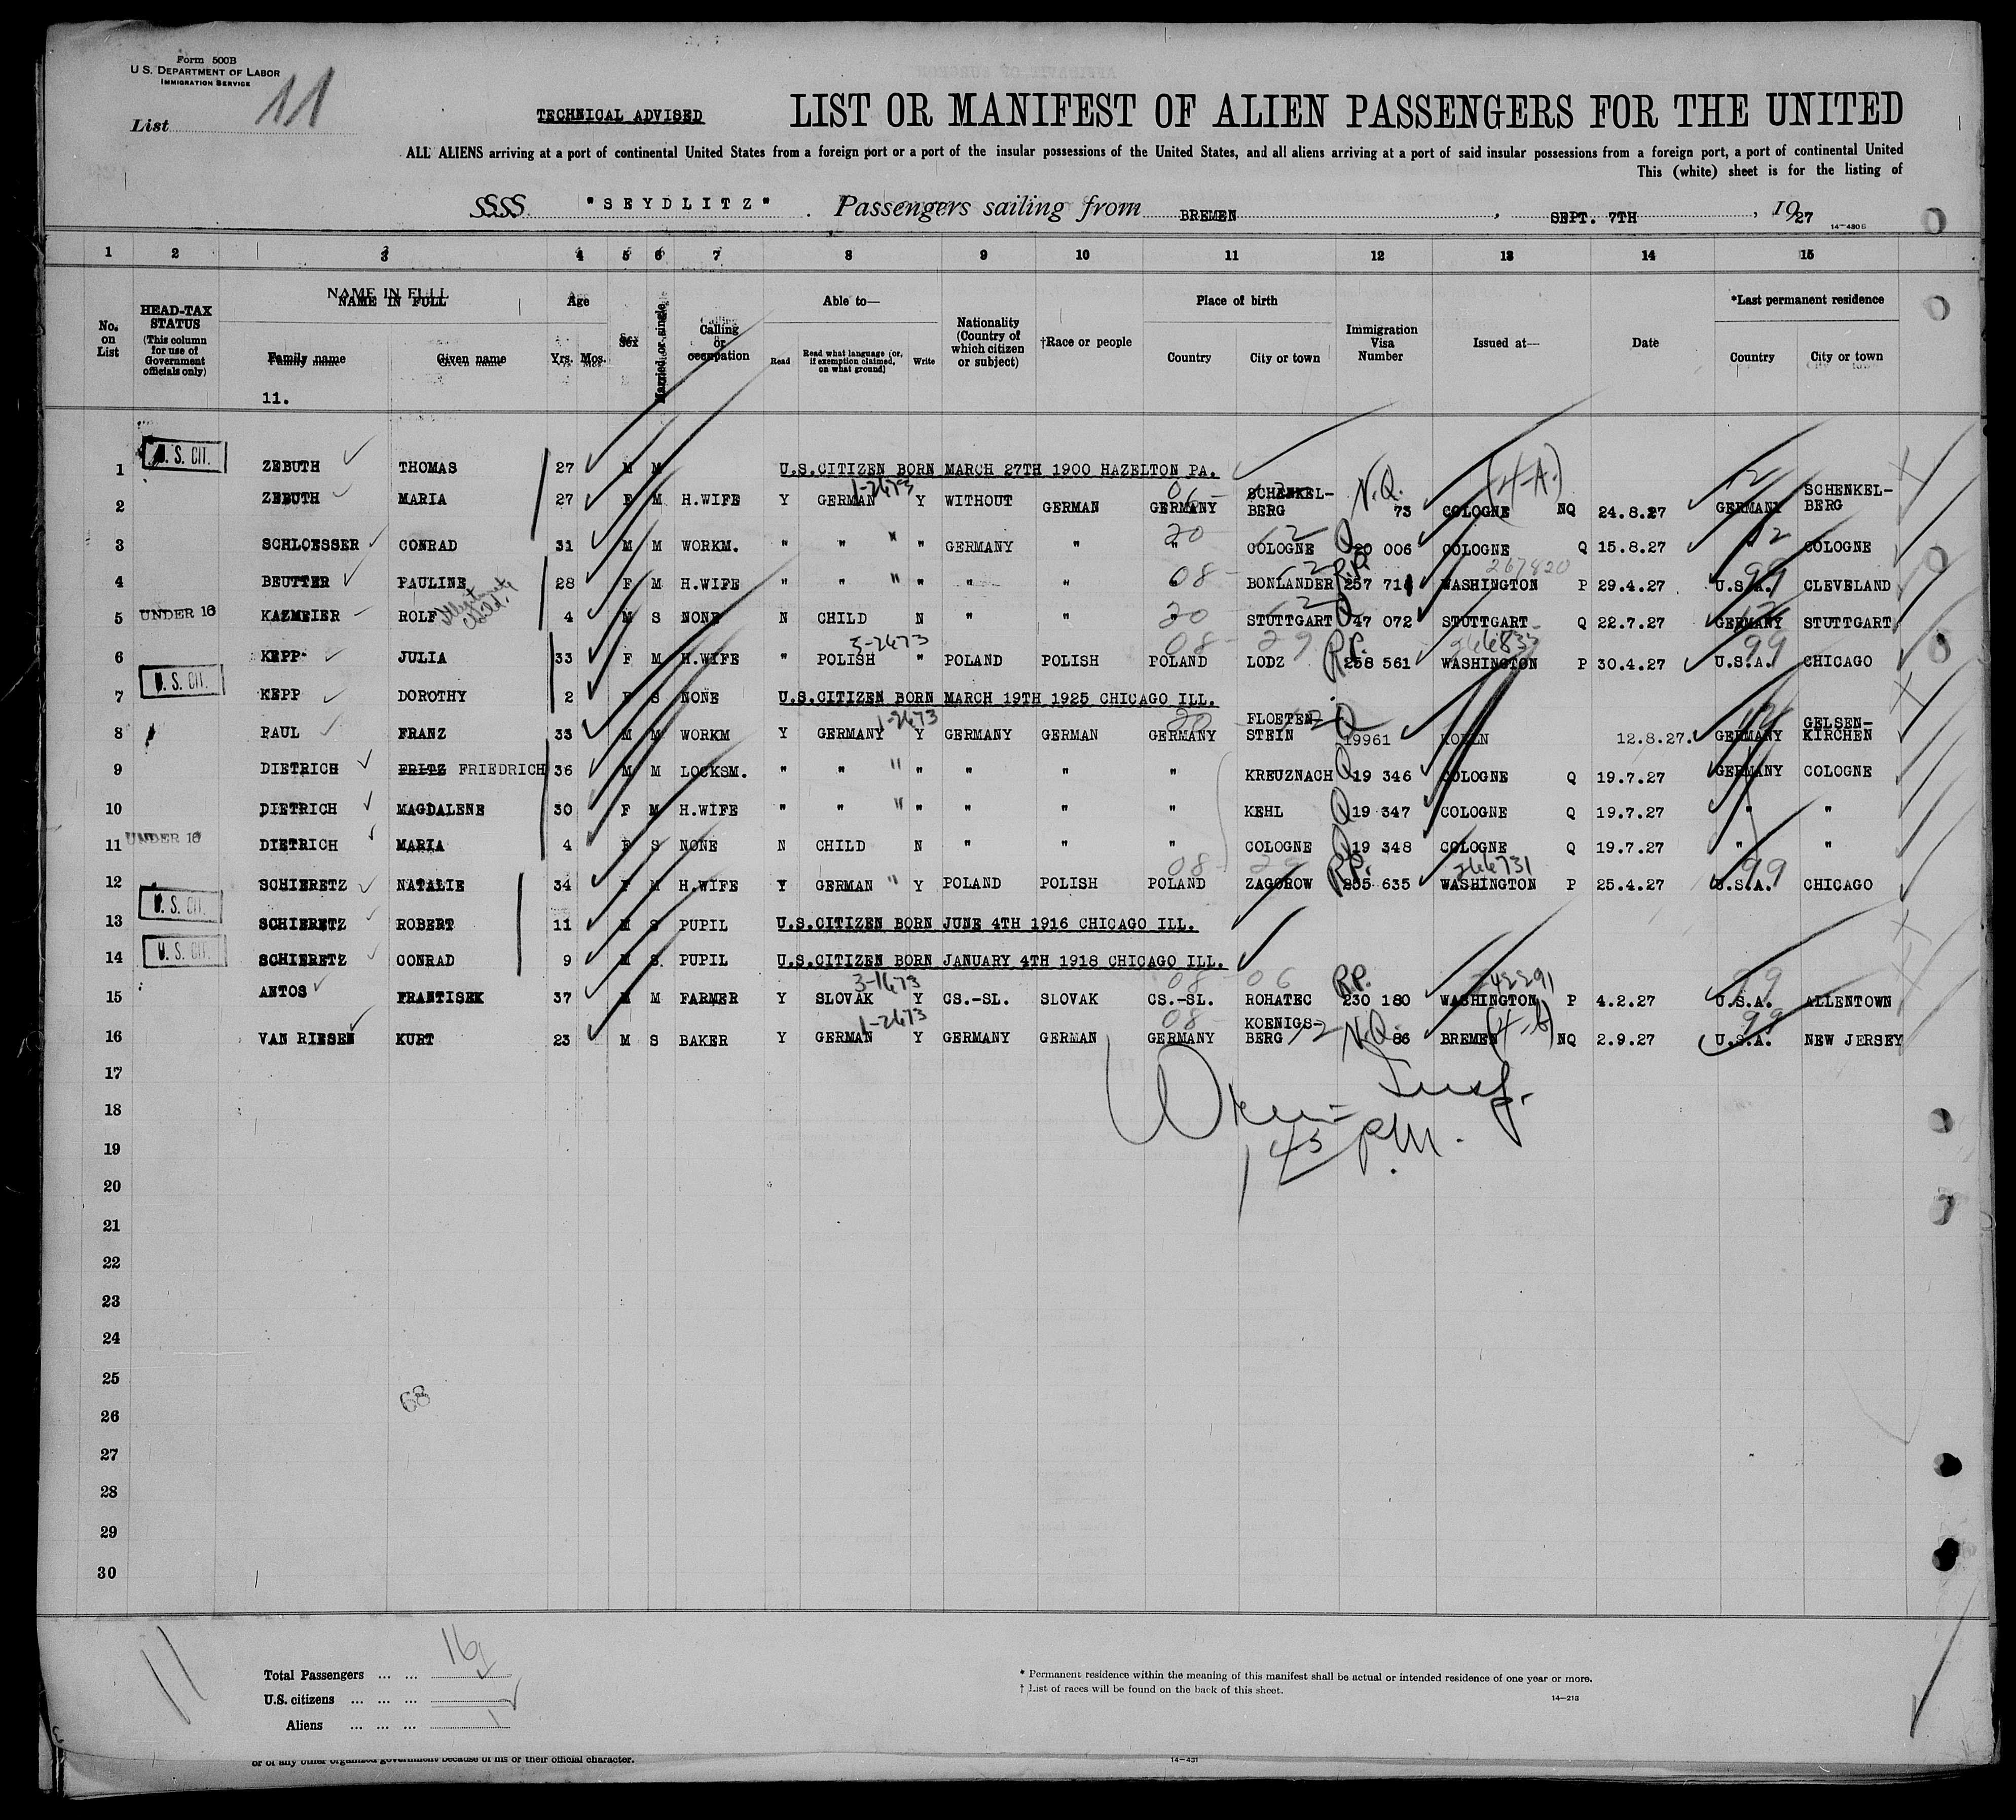 Form 500B
U.S. DEPARTMENT OF LABOR
IMMIGRATION SERVICE
List 11
TECHNICAL ADVISED
LIST OR MANIFEST OF ALIEN PASSENGERS FOR THE UNITED
ALL ALIENS arriving at a port of continental United States from a foreign port or a port of the insular possessions of the United States, and all aliens arriving at a port of said insular possessions from a foreign port, a port of continental United
This (white) sheet is for the listing of
SSSS. "SEYDLITZ". Passengers sailing from BREMEN, SEPT. 7TH, 1927
14-480B
1 2 3 4 5 6 7 8 9 10 11 12 13 14 15
No. on List
HEAD-TAX STATUS (This column for use of Government officials only)
NAME IN FULL
Family name Given name
Age
Yrs. Mos.
Sex
Married or single
Calling or occupation
Able to—
Read
Read what language (or, if exemption claimed, on what ground)
Write
Nationality (Country of which citizen or subject)
†Race or people
Place of birth
Country City or town
Immigration Visa Number
Issued at—
Date
*Last permanent residence
Country City or town
11.
1 U.S. CIT. ZEBUTH THOMAS 27 M M U.S.CITIZEN BORN MARCH 27TH 1900 HAZELTON PA.
2 ZEBUTH MARIA 27 F M H.WIFE Y GERMAN 1-2673 Y WITHOUT GERMAN 06- GERMANY SCHENKEL-BERG N.Q. 73 COLOGNE (4-A.) NQ 24.8.27 12 GERMANY SCHENKEL-BERG
3 SCHLOESSER CONRAD 31 M M WORKM. " " " " GERMANY " 20 " 12 COLOGNE Q 20 006 COLOGNE Q 15.8.27 12 " COLOGNE
4 BEUTTER PAULINE 28 F M H.WIFE " " " " " " 08- 12 BONLANDER R.P. 257 714 267820 WASHINGTON P 29.4.27 99 U.S.A. CLEVELAND
5 UNDER 16 KAZMEIER ROLF 4 M S NONE N CHILD N " " 20 " 12 STUTTGART Q 47 072 STUTTGART Q 22.7.27 12 GERMANY STUTTGART
6 KEPP JULIA 33 F M H.WIFE " POLISH 5-2673 " POLAND POLISH 08-29 POLAND LODZ R.P. 258 561 266833 WASHINGTON P 30.4.27 99 U.S.A. CHICAGO
7 U.S. CIT. KEPP DOROTHY 2 F S NONE U.S.CITIZEN BORN MARCH 19TH 1925 CHICAGO ILL.
8 PAUL FRANZ 33 M M WORKM Y GERMANY 1-2673 Y GERMANY GERMAN 20 GERMANY FLOETEN-STEIN 12 Q 19961 KOELN 12.8.27. 12 GERMANY GELSEN-KIRCHEN
9 DIETRICH FRITZ FRIEDRICH 36 M M LOCKSM. " " " " " " " KREUZNACH Q 19 346 COLOGNE Q 19.7.27 GERMANY COLOGNE
10 DIETRICH MAGDALENE 30 F M H.WIFE " " " " " " " KEHL Q 19 347 COLOGNE Q 19.7.27 " "
11 UNDER 16 DIETRICH MARIA 4 F S NONE N CHILD N " " " COLOGNE Q 19 348 COLOGNE Q 19.7.27 " "
12 SCHIERETZ NATALIE 34 F M H.WIFE Y GERMAN " Y POLAND POLISH 08-29 POLAND ZAGOROW R.P. 295 635 266731 WASHINGTON P 25.4.27 99 U.S.A. CHICAGO
13 U.S. CIT. SCHIERETZ ROBERT 11 M S PUPIL U.S.CITIZEN BORN JUNE 4TH 1916 CHICAGO ILL.
14 U.S. CIT. SCHIERETZ CONRAD 9 M S. PUPIL U.S.CITIZEN BORN JANUARY 4TH 1918 CHICAGO ILL.
15 ANTOS FRANTISEK 37 M M FARMER Y SLOVAK 3-1673 Y CS.-SL. SLOVAK 08-06 CS.-SL. ROHATEC R.P. 230 180 242291 WASHINGTON P 4.2.27 99 U.S.A. ALLENTOWN
16 VAN RIESEN KURT 23 M S BAKER Y GERMAN 1-2673 Y GERMANY GERMAN 08- GERMANY KOENIGS-BERG 12 N.Q. 86 BREMEN (4-b) NQ 2.9.27 99 U.S.A. NEW JERSEY
17
18
19 145 P.M.
20
21
22
23
24
25
26
68
27
28
29
30
11
Total Passengers ... ... 16
U.S. citizens ... ... ...
Aliens ... ... ...
* Permanent residence within the meaning of this manifest shall be actual or intended residence of one year or more.
† List of races will be found on the back of this sheet.
14-213
or of any other organized government because of his or their official character.
14-431